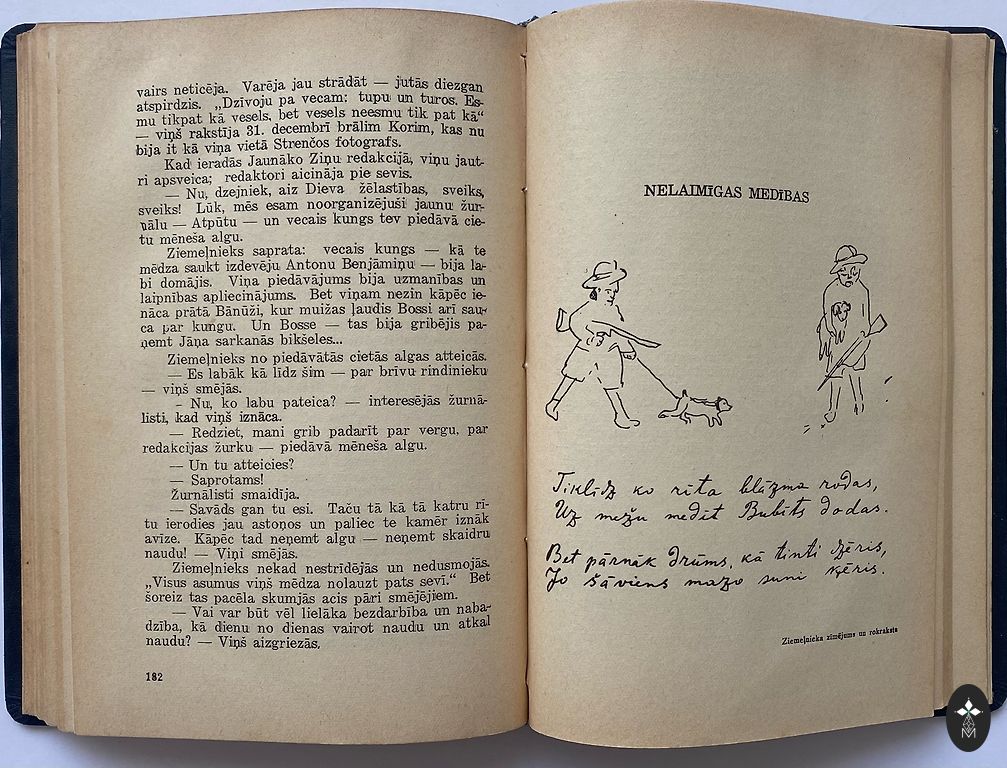 vairs neticēja. Varēja jau strādāt — jutās diezgan
atspirdzis. „Dzīvoju pa vecam: tupu un turos. Es-
mu tikpat kā vesels, bet vesels neesmu tik pat kā“
— viņš rakstīja 31. decembrī brālim Korim, kas nu
bija it kā viņa vietā Strenčos fotografs.
Kad ieradās Jaunāko Ziņu redakcijā, viņu jaut-
ri apsveica; redaktori aicināja pie sevis.
— Nu, dzejniek, aiz Dieva žēlastības, sveiks,
sveiks! Lūk, mēs esam noorganizējuši jaunu žur-
nālu — Atpūtu — un vecais kungs tev piedāvā cie-
tu mēneša algu.
Ziemeļnieks saprata: vecais kungs — kā te
mēdza saukt izdevēju Antonu Benjāmiņu — bija la-
bi domājis. Viņa piedāvājums bija uzmanības un
laipnības apliecinājums. Bet viņam nezin kāpēc ie-
nāca prātā Bānūži, kur muižas ļaudis Bossi arī sau-
ca par kungu. Un Bosse — tas bija gribējis pa-
ņemt Jāņa sarkanās bikšeles...
Ziemeļnieks no piedāvātās cietās algas atteicās.
— Es labāk kā līdz šim — par brīvu rindinieku
— viņš smējās.
— Nu, ko labu pateica? — interesējās žurnā-
listi, kad viņš iznāca.
— Redziet, mani grib padarīt par vergu, par
redakcijas žurku — piedāvā mēneša algu.
— Un tu atteicies?
— Saprotams!
Žurnālisti smaidīja.
— Savāds gan tu esi. Taču tā kā tā katru rī-
tu ierodies jau astoņos un paliec te kamēr iznāk
avīze. Kāpēc tad neņemt algu — neņemt skaidru
naudu! — Viņi smējās.
Ziemeļnieks nekad nestrīdējās un nedusmojās.
„Visus asumus viņš mēdza nolauzt pats sevī.“ Bet
šoreiz tas pacēla skumjās acis pāri smējējiem.
— Vai var būt vēl lielāka bezdarbība un naba-
dzība, kā dienu no dienas vairot naudu un atkal
naudu? — Viņš aizgriezās.
182
NELAIMĪGAS MEDĪBAS
Tiklīdz ko rīta blāzma rodas,
Uz mežu medīt Bubits dodas.
Bet pārnāk drūms, kā tinti dzēris,
Jo šāviens mazo suni ķēris.
Ziemeļnieka zīmējums un rokraksts
M